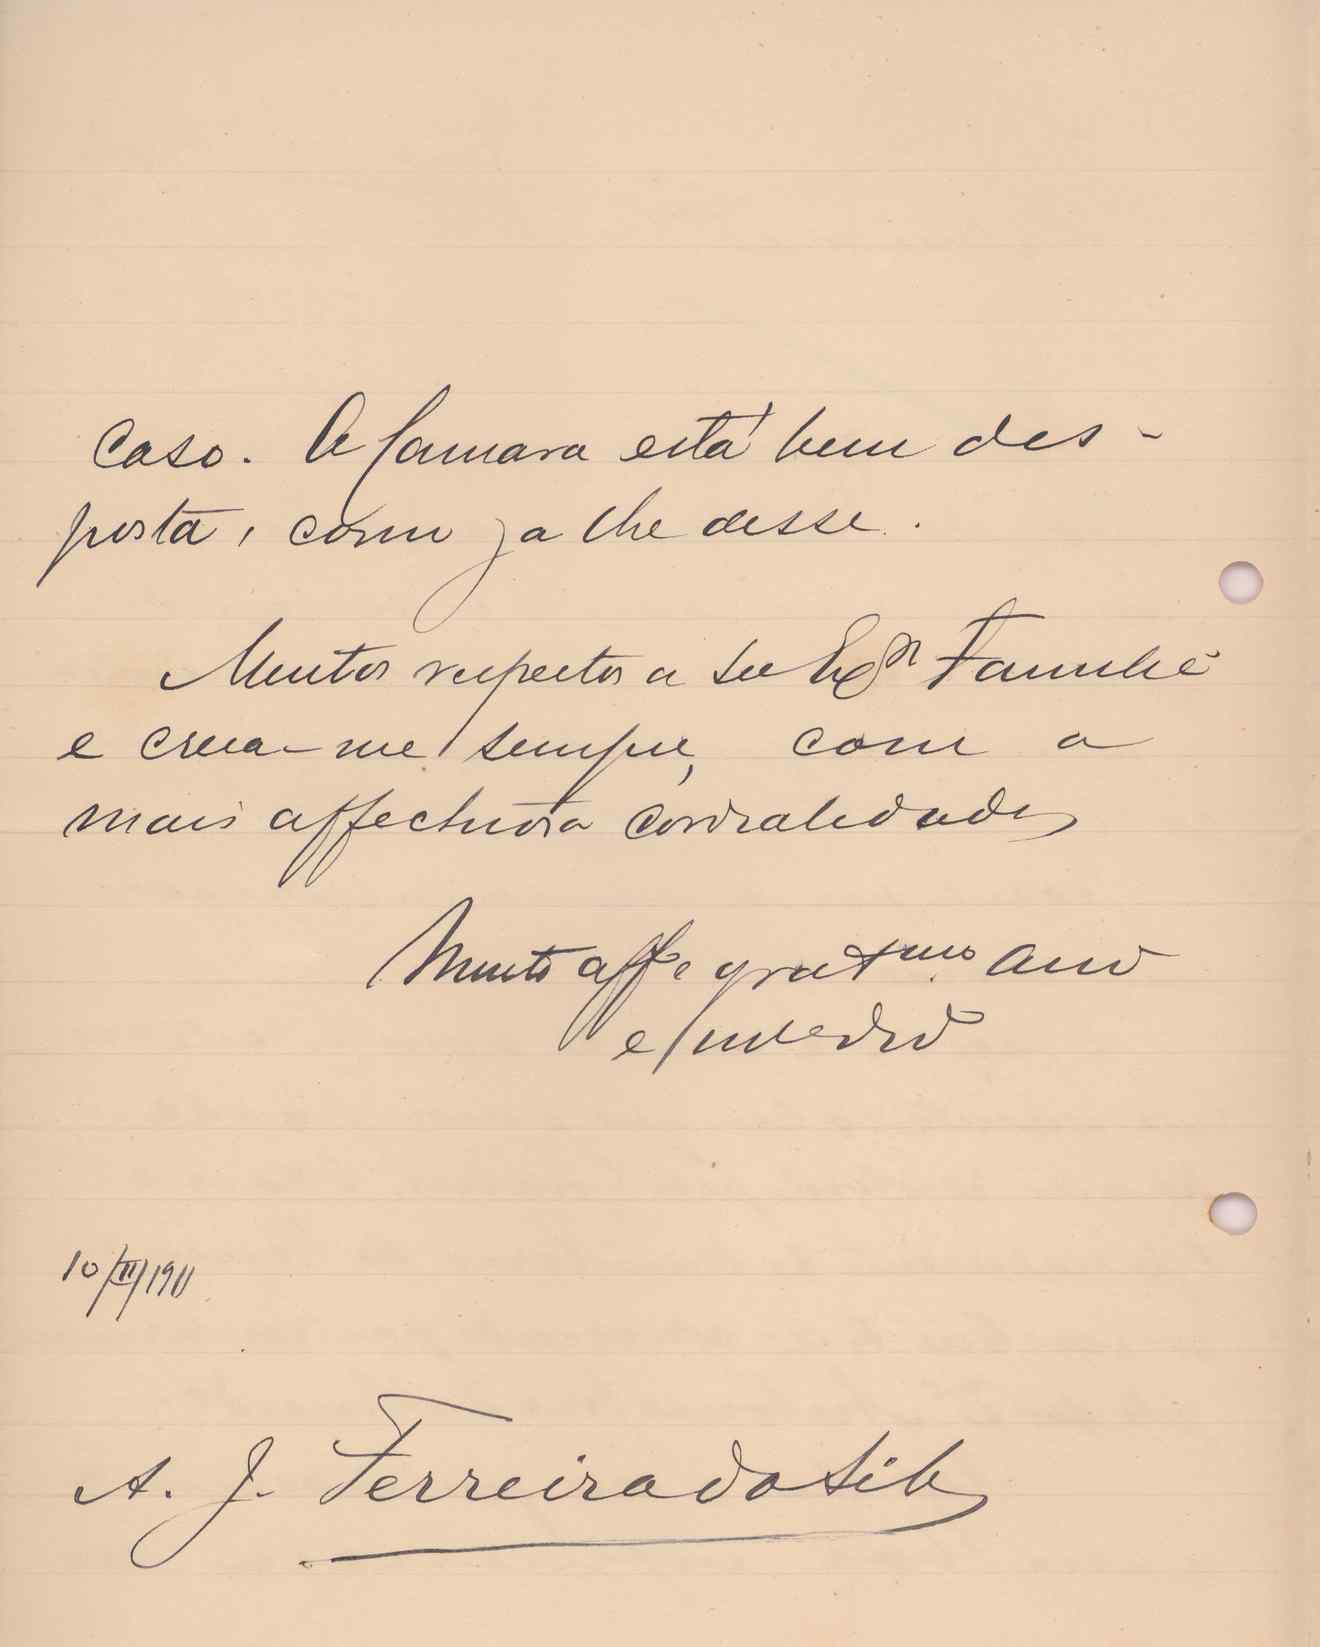 caso. A Camara está bem des-
posta, como já lhe disse.
Muitos respeitos a sua Exma Familia
e creia-me sempre, com a
mais affectuosa cordialidade
Muito affe gratmo amo
e
10/III/1911
A. J. Ferreira da Silva